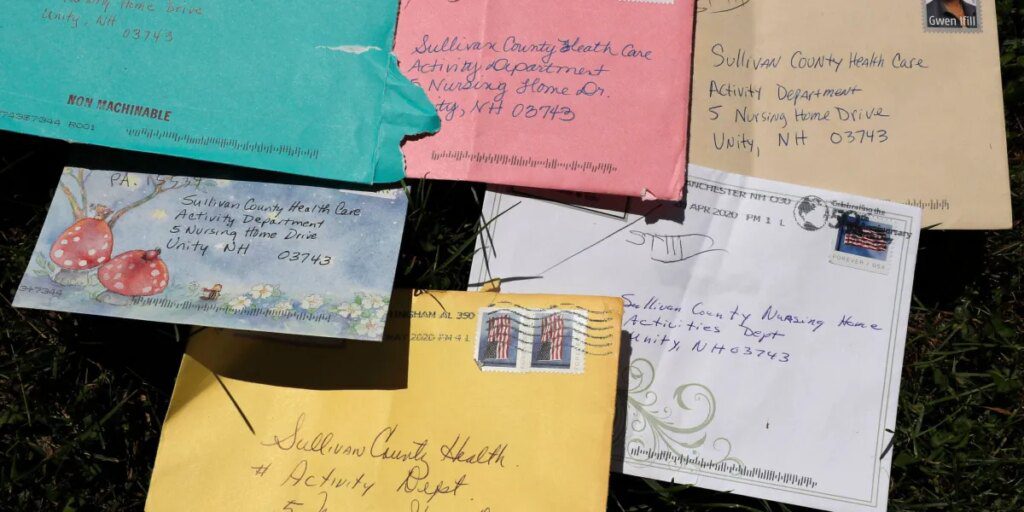 Nursing Home Drive
Unity, NH
03743
NON MACHINABLE
R001
Sullivan County Heath Care
Activity Department
5 Nursing Home Dr.
ty, NH 03743
Gwen Ifill
Sullivan County Health Care
Activity Department
5 Nursing Home Drive
Unity, NH 03743
PA.
Sullivan County Health Care
Activity Department
5 Nursing Home Drive
Unity NH 03743
ANCHESTER NH 030
APR 2020 PM 1 L
Celebrating the
FOREVER / USA
Sullivan County Nursing Home
Activities Dept
Unity, NH 03743
INGHAM AL 350
MAY 2020 PM 4 L
Sullivan County Health
# Activity Dept.
5